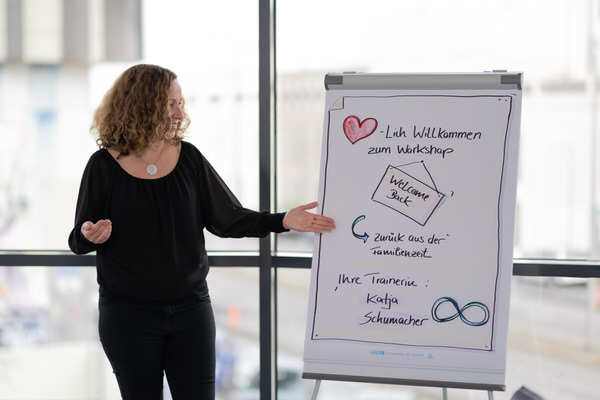 -Lich Willkommen
zum Workshop
"Welcome
Back"
zurück aus der
Familienzeit
Ihre Trainerin :
Katja
Schumacher